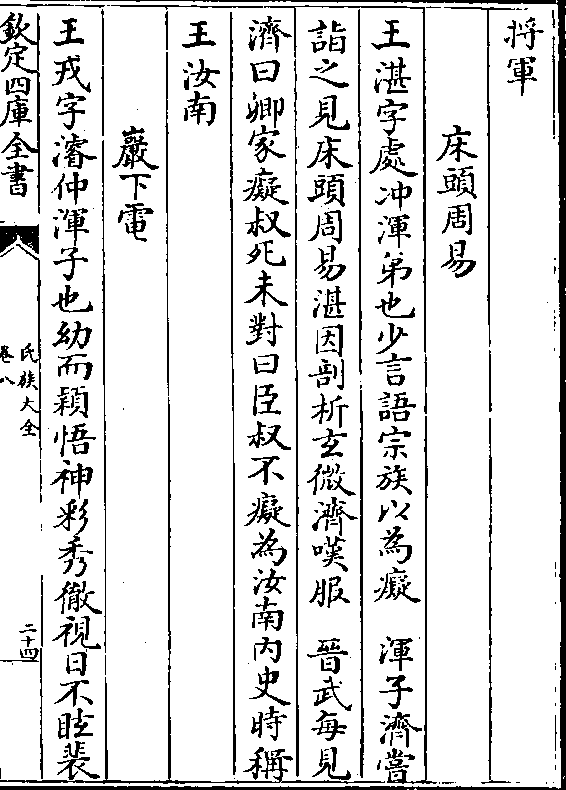 將軍
床頭周易
王湛字處冲渾弟也少言語宗族以為癡　渾子濟嘗
詣之見床頭周易湛因剖析玄微濟嘆服　晉武每見
濟曰卿家癡叔死未對曰臣叔不癡為汝南内史時稱
王汝南
巖下電
王戎字濬仲渾子也幼而穎悟神彩秀徹視日不眩裴
欽定四庫全書
氏族大全
卷八
二十四